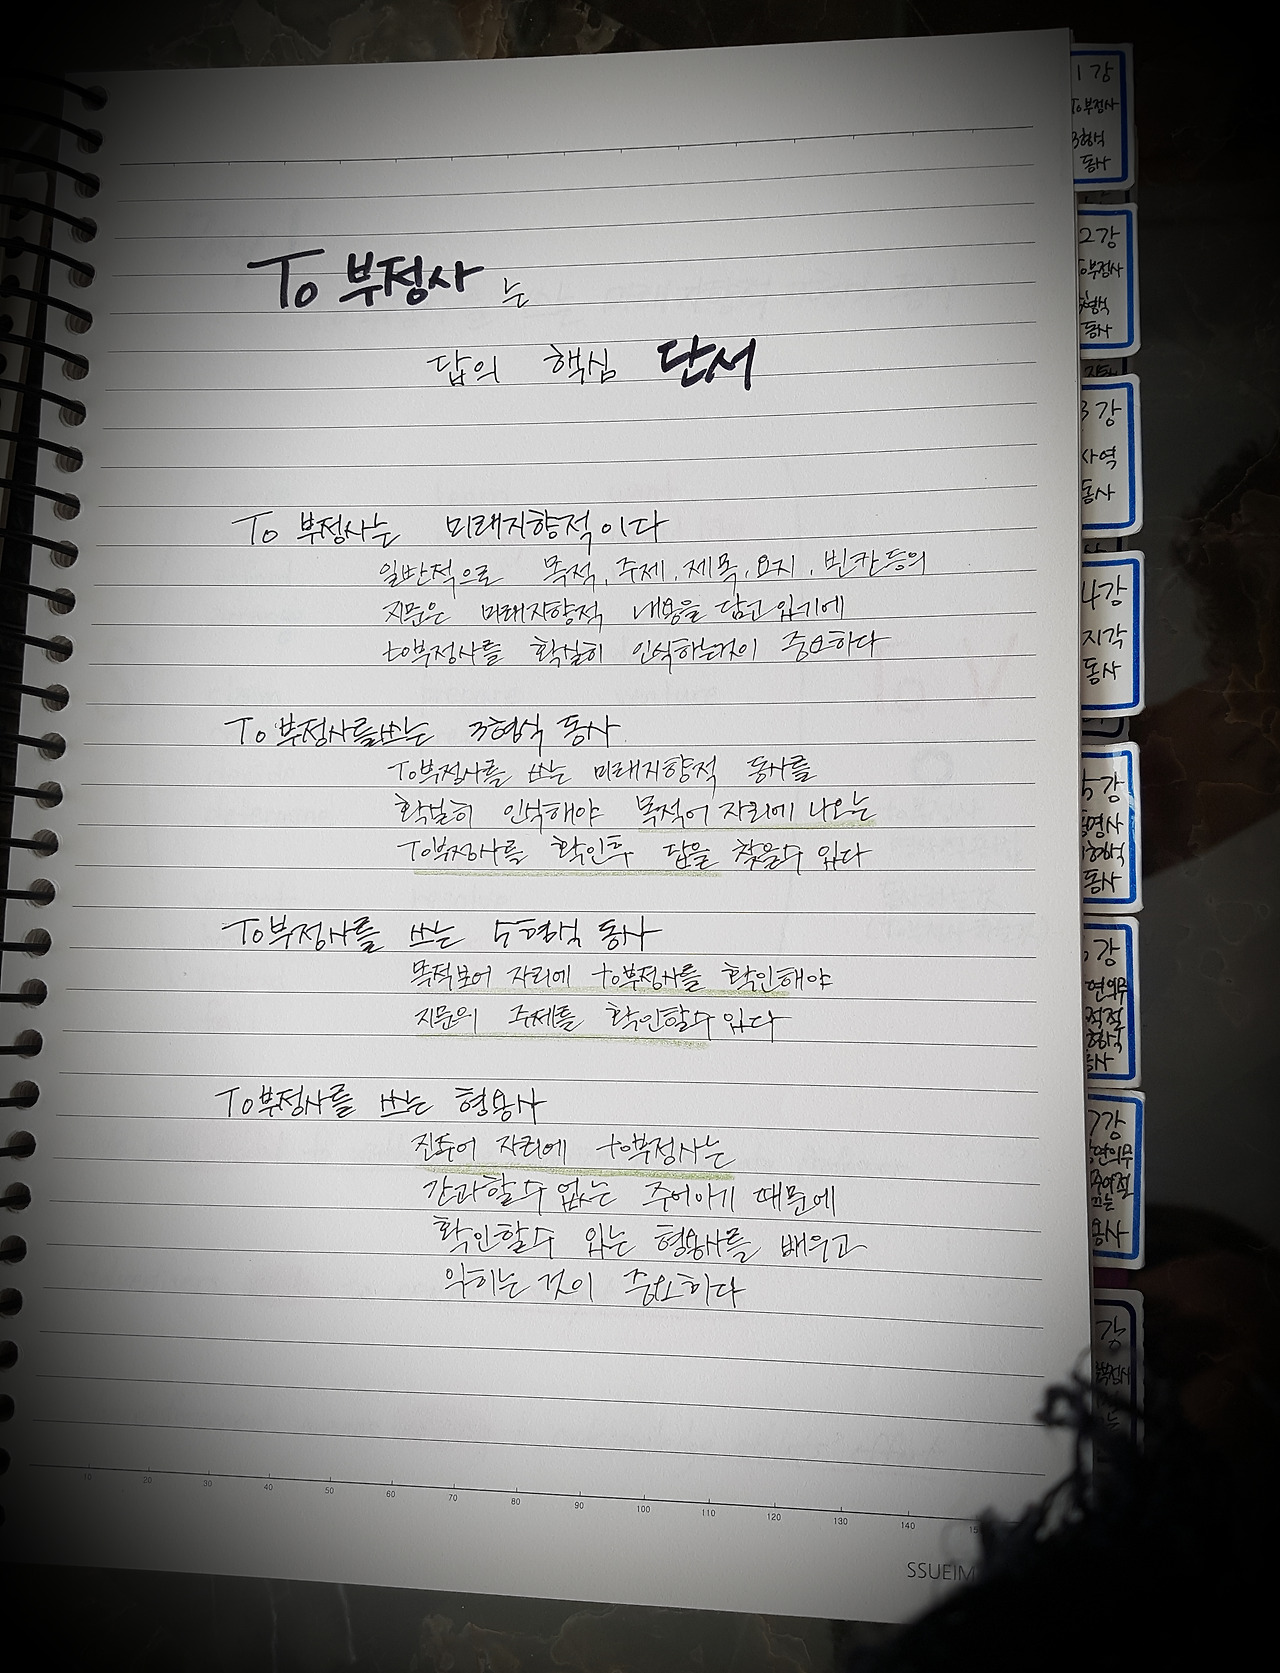 To 부정사 는
답의 핵심 단서
To 부정사는 미래지향적이다
일반적으로 목적, 주제, 제목, 요지, 빈칸 등의
지문은 미래지향적 내용을 담고 있기에
to부정사를 확실히 인식하는것이 중요하다
To 부정사를쓰는 3형식 동사
To부정사를 쓰는 미래지향적 동사를
확실히 인식해야 목적어 자리에 나오는
To부정사를 확인후 답을 찾을수 있다
To부정사를 쓰는 5형식 동사
목적보어 자리에 to부정사를 확인해야
지문의 주제를 확인할수 있다
To부정사를 쓰는 형용사
진주어 자리에 to부정사는
간과할수 없는 주어이기 때문에
확인할수 있는 형용사를 배우고
익히는 것이 중요하다
10 20 30 40 50 60 70 80 90 100 110 120 130 140
SSUEIM
1강
To부정사
3형식
동사
2강
To부정사
5형식
동사
3강
사역
동사
4강
지각
동사
5강
동명사
형식
동사
강
형식
7강
강